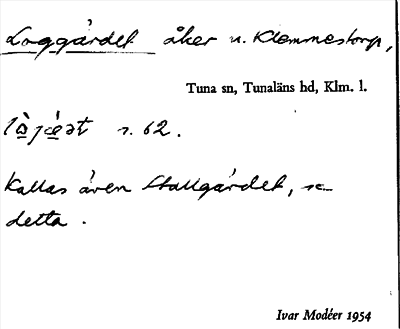 Loggärdet åker u. Klemmestorp,
Tuna sn, Tunaläns hd, Klm. l.
s. 62.
Kallas även Stallgärdet, se
detta.
Ivar Modéer 1954